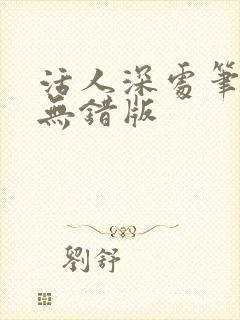 活人深處筆
無錯版
劉舒